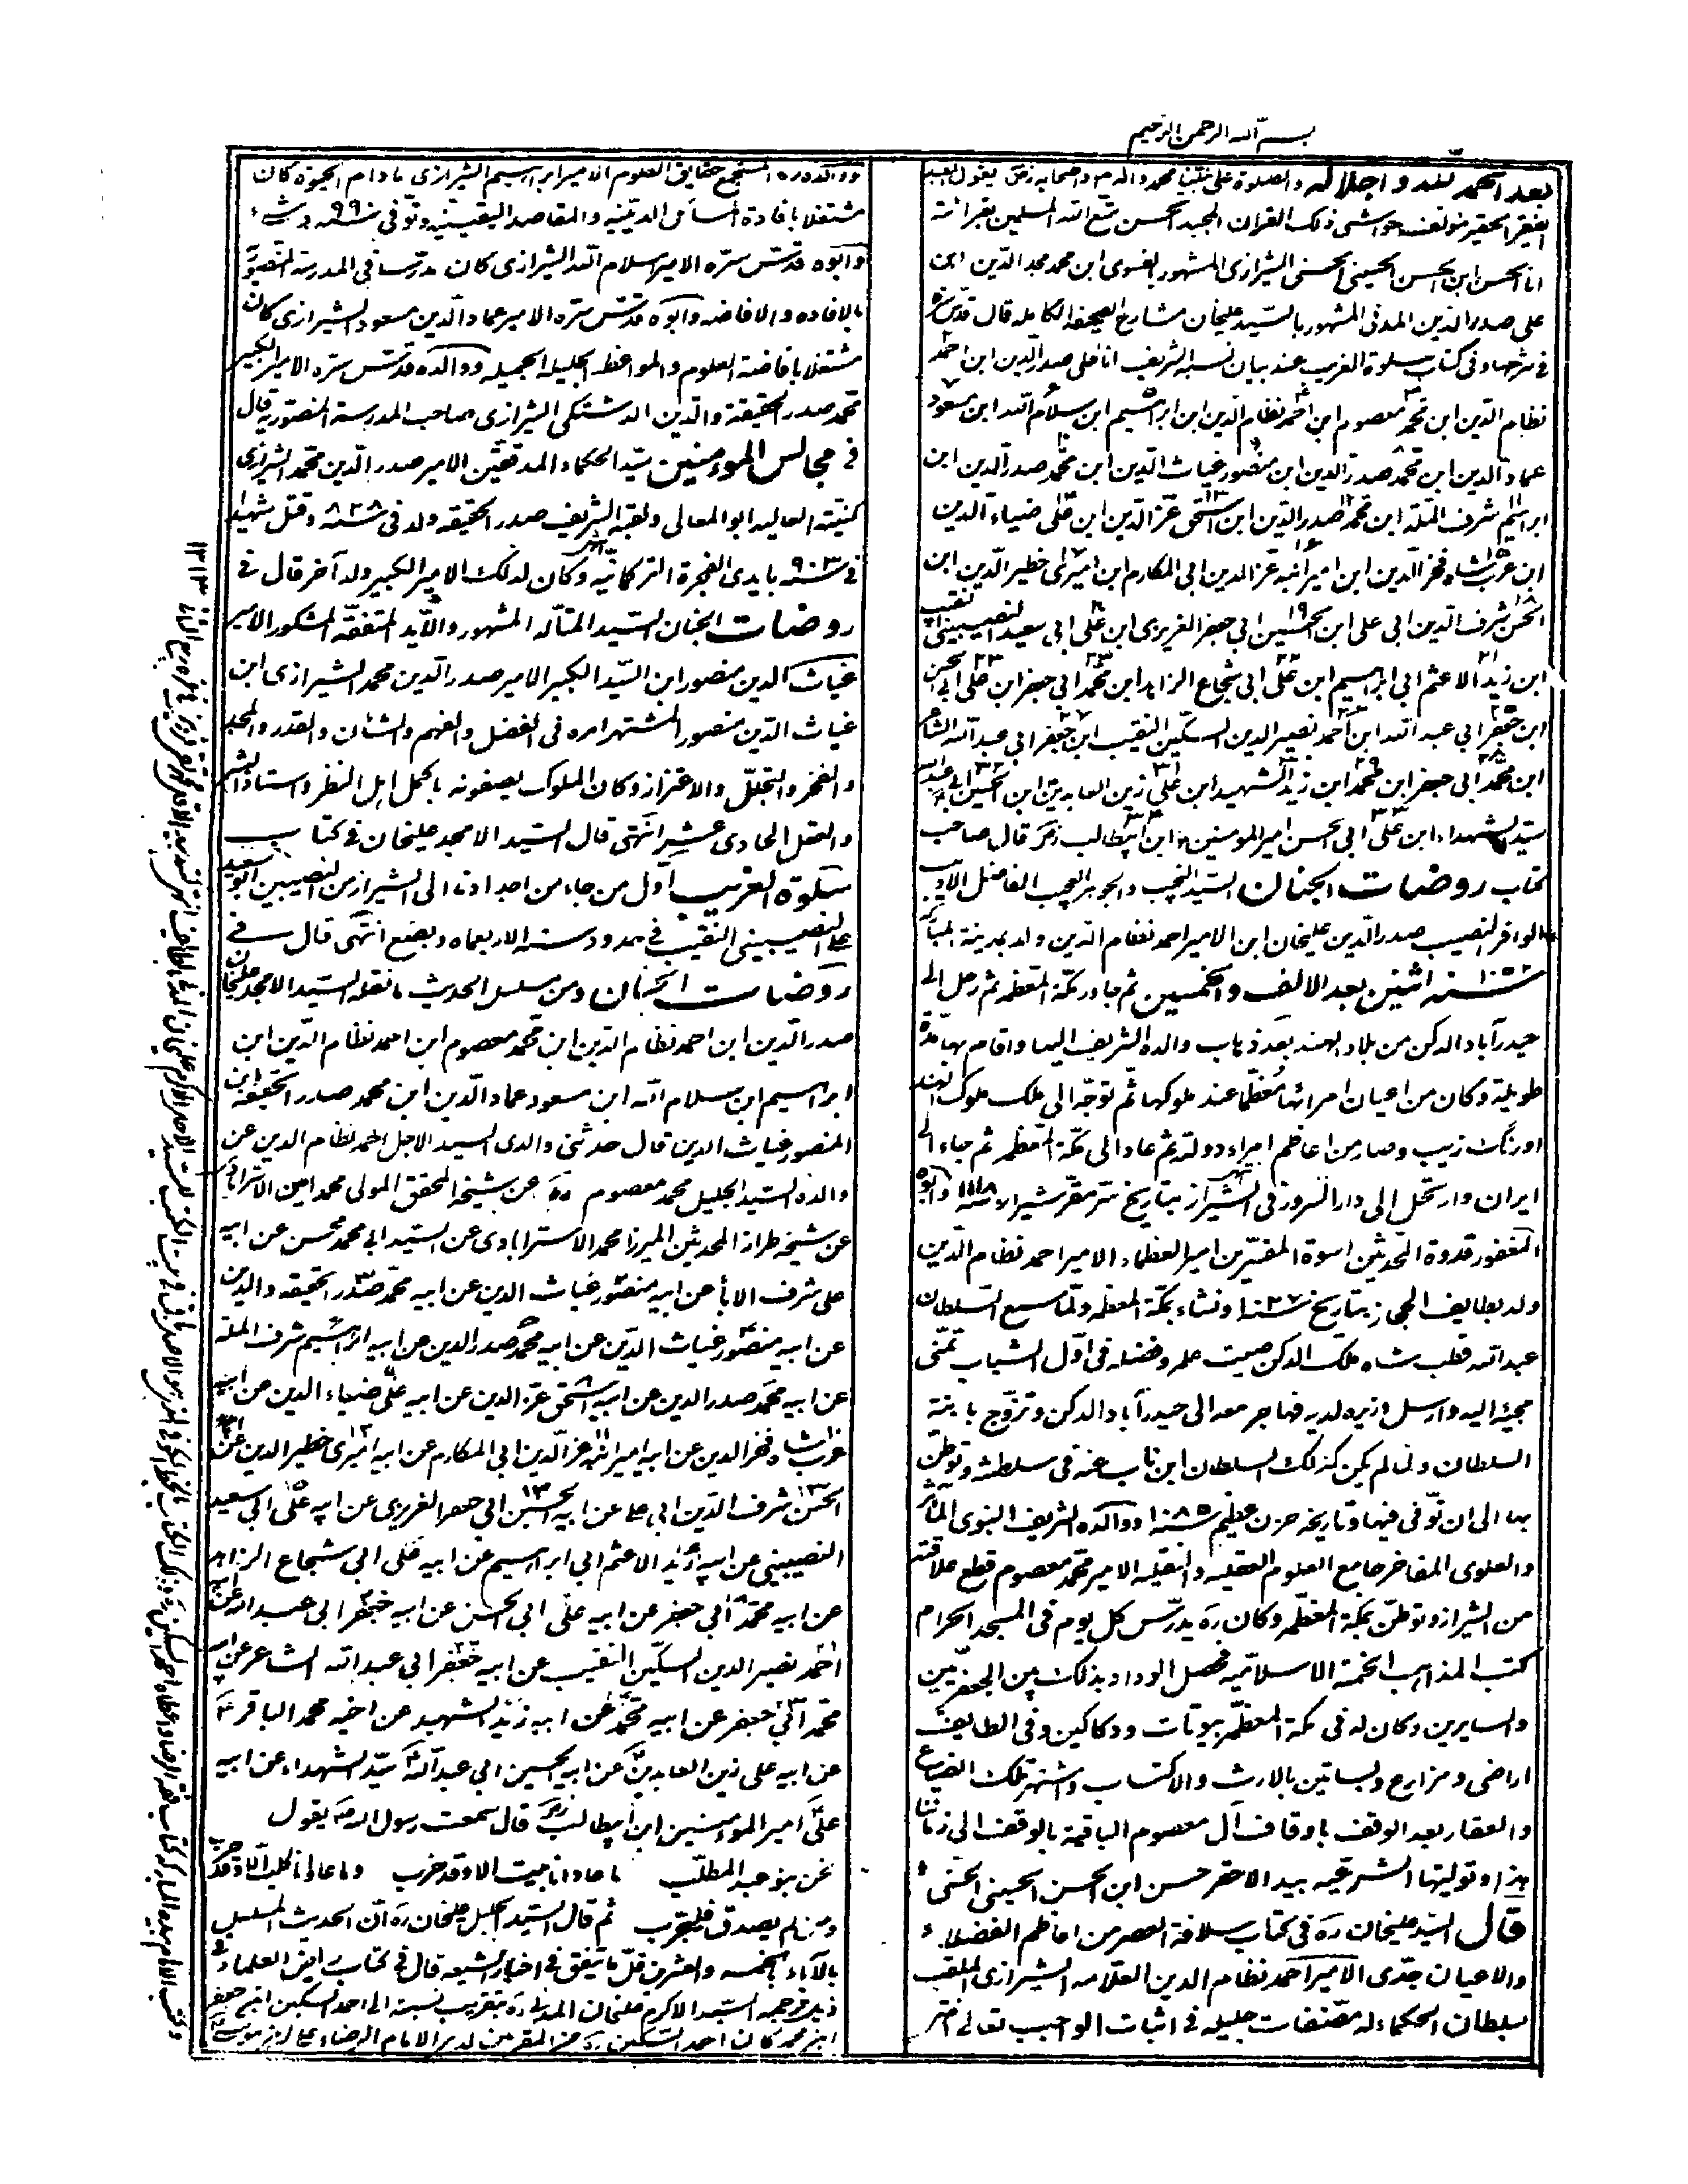 بسم الله الرحمن الرحيم
بعد الحمد لله و اجلاله والصلوة على نبينا محمد واله واصحابه يقول العبد
الفقير الحقير مؤلف حواشى ذلك القران المجيد الحسن متع الله المسلمين بقرائته
انا الحسن ابن الحسن الحسينى الحسنى الشيرازى المشهور الفسوى ابن محمد مجد الدين ابن
على صدر الدين المدنى المشهور بالسيد عليخان شارح الصحيفة الكامله قال قدس سره
فى شرحها وفى كتاب سلوة الغريب عند بيان نسبه الشريف انا على صدر الدين ابن احمد
نظام الدين ابن محمد معصوم ابن احمد نظام الدين ابن ابراهيم ابن سلام الله ابن مسعود
عماد الدين ابن محمد صدر الدين ابن منصور غياث الدين ابن محمد صدر الدين ابن
ابراهيم شرف الملة ابن محمد صدر الدين ابن اسحق عز الدين ابن على ضياء الدين
ابن عربشاه فخر الدين ابن امير انبه عز الدين ابى المكارم ابن اميرى خطير الدين ابن
الحسن شرف الدين ابى على ابن الحسين ابى جعفر العزيزى ابن على ابى سعيد النصيبينى النقيب
ابن زيد الاعثم ابى ابراهيم ابن على ابى شجاع الزاهد ابن محمد ابى جعفر ابن على ابى الحسن
ابن جعفر ابى عبد الله ابن احمد نصير الدين السكين النقيب ابن جعفر ابى عبد الله الشاعر
ابن محمد ابى جعفر ابن محمد ابن زيد الشهيد ابن على زين العابدين ابن الحسين ابى عبد الله
سيد الشهداء ابن على ابى الحسن امير المومنين ابن ابيطالب قال صاحب
كتاب روضات الجنان السيد النجيب والجوهر العجيب الفاضل الاديب
الوافر النصيب صدر الدين عليخان ابن الامير احمد نظام الدين ولد بمدينة المباركه
١٠٥٢ سنه اثنين بعد الالف والخمسين ثم جاور مكة المعظمه ثم رحل الى
حيدرآباد الدكن من بلاد الهند بعد ذهاب والده الشريف اليها واقام بها مدة
طويلة وكان من اعيان امرائها معظما عند ملوكها ثم توجه الى ملك ملوك الهند
اورنگ زيب وصار من اعاظم امراء دولته ثم عاد الى مكة المعظمه ثم جاء الى
ايران وارتحل الى دار السرور فى الشيراز بتاريخ ١١١٨ وابوه
المغفور قدوة المحدثين اسوة المفسرين امير العظماء الامير احمد نظام الدين
ولد بطايف الحجاز بتاريخ سنه ١٠٢٧ ونشاء بمكة المعظمه ولما سمع السلطان
عبد الله قطب شاه ملك الدكن صيت علمه وفضله فى اول الشباب تمنى
مجيئه اليه وارسل وزيره لديه فهاجر معه الى حيدرآباد الدكن وتزوج بابنة
السلطان ولما لم يكن كذلك السلطان ابن ناب عنه فى سلطنته وتوطن
بها الى ان توفى فيها وتاريخه حزن عظيم سنه ١٠٨٥ ووالده الشريف النبوى المآثر
والعلوى المفاخر جامع العلوم العقليه والنقليه الامير محمد معصوم قطع علاقته
من الشيراز وتوطن بمكة المعظمه وكان ره يدرس كل يوم فى المسجد الحرام
كتب المذاهب الخمسة الاسلاميه فحصل الوداد بذلك بين الجعفريين
والسايرين وكان له فى مكة المعظمه بيوتات ودكاكين وفى الطايف
اراضى ومزارع وبساتين بالارث والاكتساب واشتهر تلك الضياع
والعقار بعد الوقف باوقاف آل معصوم الباقية بالوقف الى زماننا
هذا وتوليتها الشرعيه بيد الاحقر حسن ابن الحسن الحسينى الحسنى
قال السيد عليخان ره فى كتاب سلافة العصر من اعاظم الفضلاء
والاعيان جدى الامير احمد نظام الدين العلامه الشيرازى الملقب
سلطان الحكماء له مصنفات جليله فى اثبات الواجب تعالى
ووالده ره المستجمع حقايق العلوم الامير ابراهيم الشيرازى مادام الحيوة كان
مشتغلا بافادة المسائل الدينيه والمقاصد اليقينيه وتوفى سنه ٩٩
وابوه قدس سره الامير سلام الله الشيرازى كان مدرسا فى المدرسة المنصوريه
بالافاده والافاضه وابوه قدس سره الامير عماد الدين مسعود الشيرازى كان
مشتغلا بافاضة العلوم والمواعظ الجليلة الجميله ووالده قدس سره الامير الكبير
محمد صدر الحقيقة والدين الدشتكى الشيرازى صاحب المدرسة المنصوريه قال
فى مجالس المومنين سيد الحكماء المدققين الامير صدر الدين محمد الشيرازى
كنيته العاليه ابو المعالى ولقبه الشريف صدر الحقيقه ولد فى سنه ٨٢٨ وقتل شهيدا
فى سنه ٩٠٣ بايدى الفجرة التركمانيه وكان لذلك الامير الكبير ولد آخر قال فى
روضات الجنان السيد المتاله المشهور والايد المتفقه المشكور الامير
غياث الدين منصور ابن السيد الكبير الامير صدر الدين محمد الشيرازى ابن
غياث الدين منصور المشتهر امره فى الفضل والفهم والشان والقدر والمجد
والفخر والتجلل والاعتزاز وكان الملوك يصفونه باكمل اهل النظر واستاذ البشر
والعقل الحادى عشر انتهى قال السيد الامجد عليخان فى كتاب
سلوة الغريب اول من جاء من اجدادنا الى الشيراز من النصيبين ابو سعيد
على النصيبينى النقيب فى حدود سنه الاربعماه وبضع انتهى قال فى
روضات الجنان ومن مسلسل الحديث ما نقله السيد الامجد عليخان
صدر الدين ابن احمد نظام الدين ابن محمد معصوم ابن احمد نظام الدين ابن
ابراهيم ابن سلام الله ابن مسعود عماد الدين ابن محمد صدر الحقيقه ابن
المنصور غياث الدين قال حدثنى والدى السيد الاجل احمد نظام الدين عن
والده السيد الجليل محمد معصوم عن شيخه المحقق المولى محمد امين الاسترابادى
عن شيخه طراز المحدثين الميرزا محمد الاسترابادى عن السيد ابى محمد محسن عن ابيه
على شرف الاباء عن ابيه منصور غياث الدين عن ابيه محمد صدر الحقيقه والدين
عن ابيه منصور غياث الدين عن ابيه محمد صدر الدين عن ابيه ابراهيم شرف الملة
عن ابيه محمد صدر الدين عن ابيه اسحق عز الدين عن ابيه على ضياء الدين عن ابيه
عربشاه فخر الدين عن ابيه امير انبه عز الدين ابى المكارم عن ابيه اميرى خطير الدين عن ابيه
الحسن شرف الدين ابى على عن ابيه الحسين ابى جعفر العزيزى عن ابيه على ابى سعيد
النصيبينى عن ابيه زيد الاعثم ابى ابراهيم عن ابيه على ابى شجاع الزاهد
عن ابيه محمد ابى جعفر عن ابيه على ابى الحسن عن ابيه جعفر ابى عبد الله عن ابيه
احمد نصير الدين السكين النقيب عن ابيه جعفر ابى عبد الله الشاعر عن ابيه
محمد ابى جعفر عن ابيه محمد عن ابيه زيد الشهيد عن اخيه محمد الباقر ع
عن ابيه على زين العابدين عن ابيه الحسين ابى عبد الله سيد الشهداء عن ابيه
على امير المومنين ابن ابيطالب قال سمعت رسول الله يقول
نحن بنو عبد المطلب ما عادانا بيت الا وقد خرب وما عاوانا كلب الا وقد جرب
ومن لم يصدق فليجرب ثم قال السيد الجليل عليخان ره ان الحديث المسلسل
بالآباء بخمسه والعشرين قل ما يتفق فى اخبار الشيعه قال فى كتاب رياض العلماء فى
ذيل ترجمه السيد الاكرم عليخان المدنى ره بتقريب نسبته الى احمد السكين ابن جعفر
ابن محمد كان احمد السكين ره من المقربين لدى الامام الرضا
١٣١٣